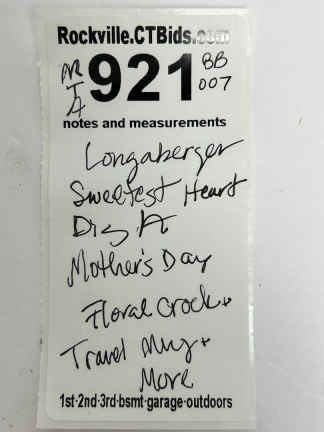 Rockville.CTBids.com
MR I A 921 BB 007
notes and measurements
Longaberger
Sweetest Heart
Dish
Mother's Day
Floral Crock +
Travel Mug +
More
1st·2nd·3rd·bsmt·garage·outdoors